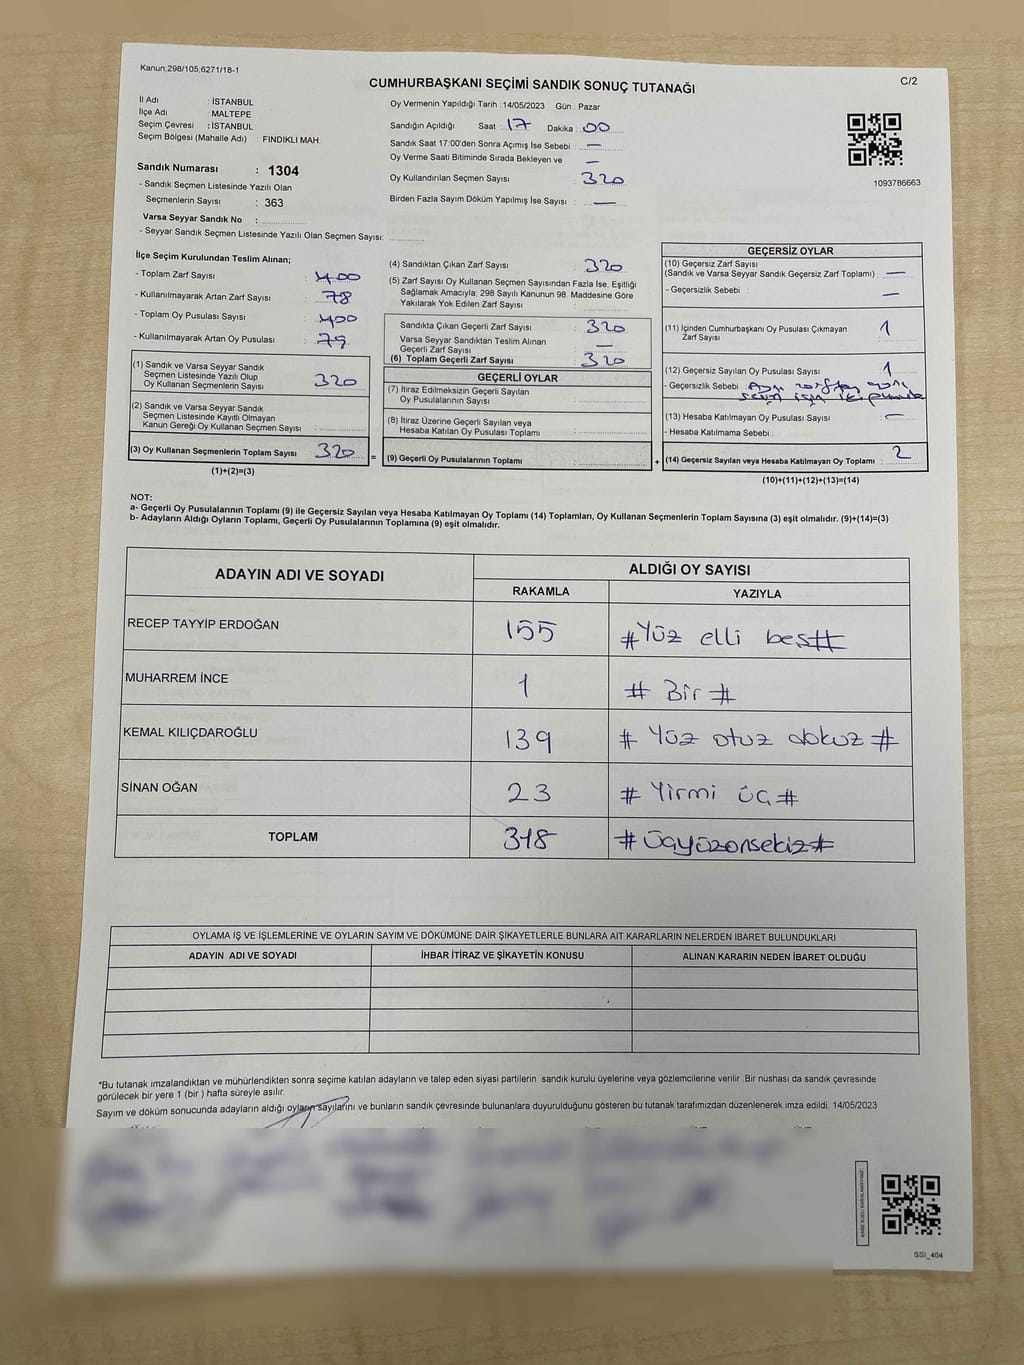 Kanun;298/105;6271/18-1
C/2
CUMHURBAŞKANI SEÇİMİ SANDIK SONUÇ TUTANAĞI
İl Adı : İSTANBUL
İlçe Adı : MALTEPE
Seçim Çevresi : İSTANBUL
Seçim Bölgesi (Mahalle Adı) : FINDIKLI MAH.
Sandık Numarası : 1304
- Sandık Seçmen Listesinde Yazılı Olan
Seçmenlerin Sayısı : 363
Varsa Seyyar Sandık No :
- Seyyar Sandık Seçmen Listesinde Yazılı Olan Seçmen Sayısı:
Oy Vermenin Yapıldığı Tarih : 14/05/2023 Gün : Pazar
Sandığın Açıldığı Saat : 17 Dakika : 00
Sandık Saat 17:00'den Sonra Açımış İse Sebebi : —
Oy Verme Saati Bitiminde Sırada Bekleyen ve —
Oy Kullandırılan Seçmen Sayısı : 320
Birden Fazla Sayım Döküm Yapılmış İse Sayısı : —
1093786663
İlçe Seçim Kurulundan Teslim Alınan;
- Toplam Zarf Sayısı : 400
- Kullanılmayarak Artan Zarf Sayısı : 78
- Toplam Oy Pusulası Sayısı : 400
- Kullanılmayarak Artan Oy Pusulası : 79
(1) Sandık ve Varsa Seyyar Sandık
Seçmen Listesinde Yazılı Olup
Oy Kullanan Seçmenlerin Sayısı : 320
(2) Sandık ve Varsa Seyyar Sandık
Seçmen Listesinde Kayıtlı Olmayan
Kanun Gereği Oy Kullanan Seçmen Sayısı :
(3) Oy Kullanan Seçmenlerin Toplam Sayısı : 320 =
(1)+(2)=(3)
(4) Sandıktan Çıkan Zarf Sayısı : 320
(5) Zarf Sayısı Oy Kullanan Seçmen Sayısından Fazla İse, Eşitliği
Sağlamak Amacıyla, 298 Sayılı Kanunun 98. Maddesine Göre
Yakılarak Yok Edilen Zarf Sayısı :
Sandıkta Çıkan Geçerli Zarf Sayısı : 320
Varsa Seyyar Sandıktan Teslim Alınan
Geçerli Zarf Sayısı : —
(6) Toplam Geçerli Zarf Sayısı : 320
GEÇERLİ OYLAR
(7) İtiraz Edilmeksizin Geçerli Sayılan
Oy Pusulalarının Sayısı :
(8) İtiraz Üzerine Geçerli Sayılan veya
Hesaba Katılan Oy Pusulası Toplamı :
(9) Geçerli Oy Pusulalarının Toplamı : +
GEÇERSİZ OYLAR
(10) Geçersiz Zarf Sayısı
(Sandık ve Varsa Seyyar Sandık Geçersiz Zarf Toplamı) : —
- Geçersizlik Sebebi : —
(11) İçinden Cumhurbaşkanı Oy Pusulası Çıkmayan
Zarf Sayısı : 1
(12) Geçersiz Sayılan Oy Pusulası Sayısı : 1
- Geçersizlik Sebebi : Aynı zarftan aynı
seçim için iki pusula
(13) Hesaba Katılmayan Oy Pusulası Sayısı : —
- Hesaba Katılmama Sebebi :
(14) Geçersiz Sayılan veya Hesaba Katılmayan Oy Toplamı : 2
(10)+(11)+(12)+(13)=(14)
NOT:
a- Geçerli Oy Pusulalarının Toplamı (9) ile Geçersiz Sayılan veya Hesaba Katılmayan Oy Toplamı (14) Toplamları, Oy Kullanan Seçmenlerin Toplam Sayısına (3) eşit olmalıdır. (9)+(14)=(3)
b- Adayların Aldığı Oyların Toplamı, Geçerli Oy Pusulalarının Toplamına (9) eşit olmalıdır.
ADAYIN ADI VE SOYADI ALDIĞI OY SAYISI
RAKAMLA YAZIYLA
RECEP TAYYİP ERDOĞAN 155 #Yüz elli beş#
MUHARREM İNCE 1 # Bir #
KEMAL KILIÇDAROĞLU 139 # Yüz otuz dokuz #
SİNAN OĞAN 23 # Yirmi üç #
TOPLAM 318 #Üçyüzonsekiz#
OYLAMA İŞ VE İŞLEMLERİNE VE OYLARIN SAYIM VE DÖKÜMÜNE DAİR ŞİKAYETLERLE BUNLARA AİT KARARLARIN NELERDEN İBARET BULUNDUKLARI
ADAYIN ADI VE SOYADI İHBAR İTİRAZ VE ŞİKAYETİN KONUSU ALINAN KARARIN NEDEN İBARET OLDUĞU
*Bu tutanak imzalandıktan ve mühürlendikten sonra seçime katılan adayların ve talep eden siyasi partilerin sandık kurulu üyelerine veya gözlemcilerine verilir .Bir nüshası da sandık çevresinde
görülecek bir yere 1 (bir ) hafta süreyle asılır.
Sayım ve döküm sonucunda adayların aldığı oyların sayılarını ve bunların sandık çevresinde bulunanlara duyurulduğunu gösteren bu tutanak tarafımızdan düzenlenerek imza edildi. 14/05/2023
SSI_404